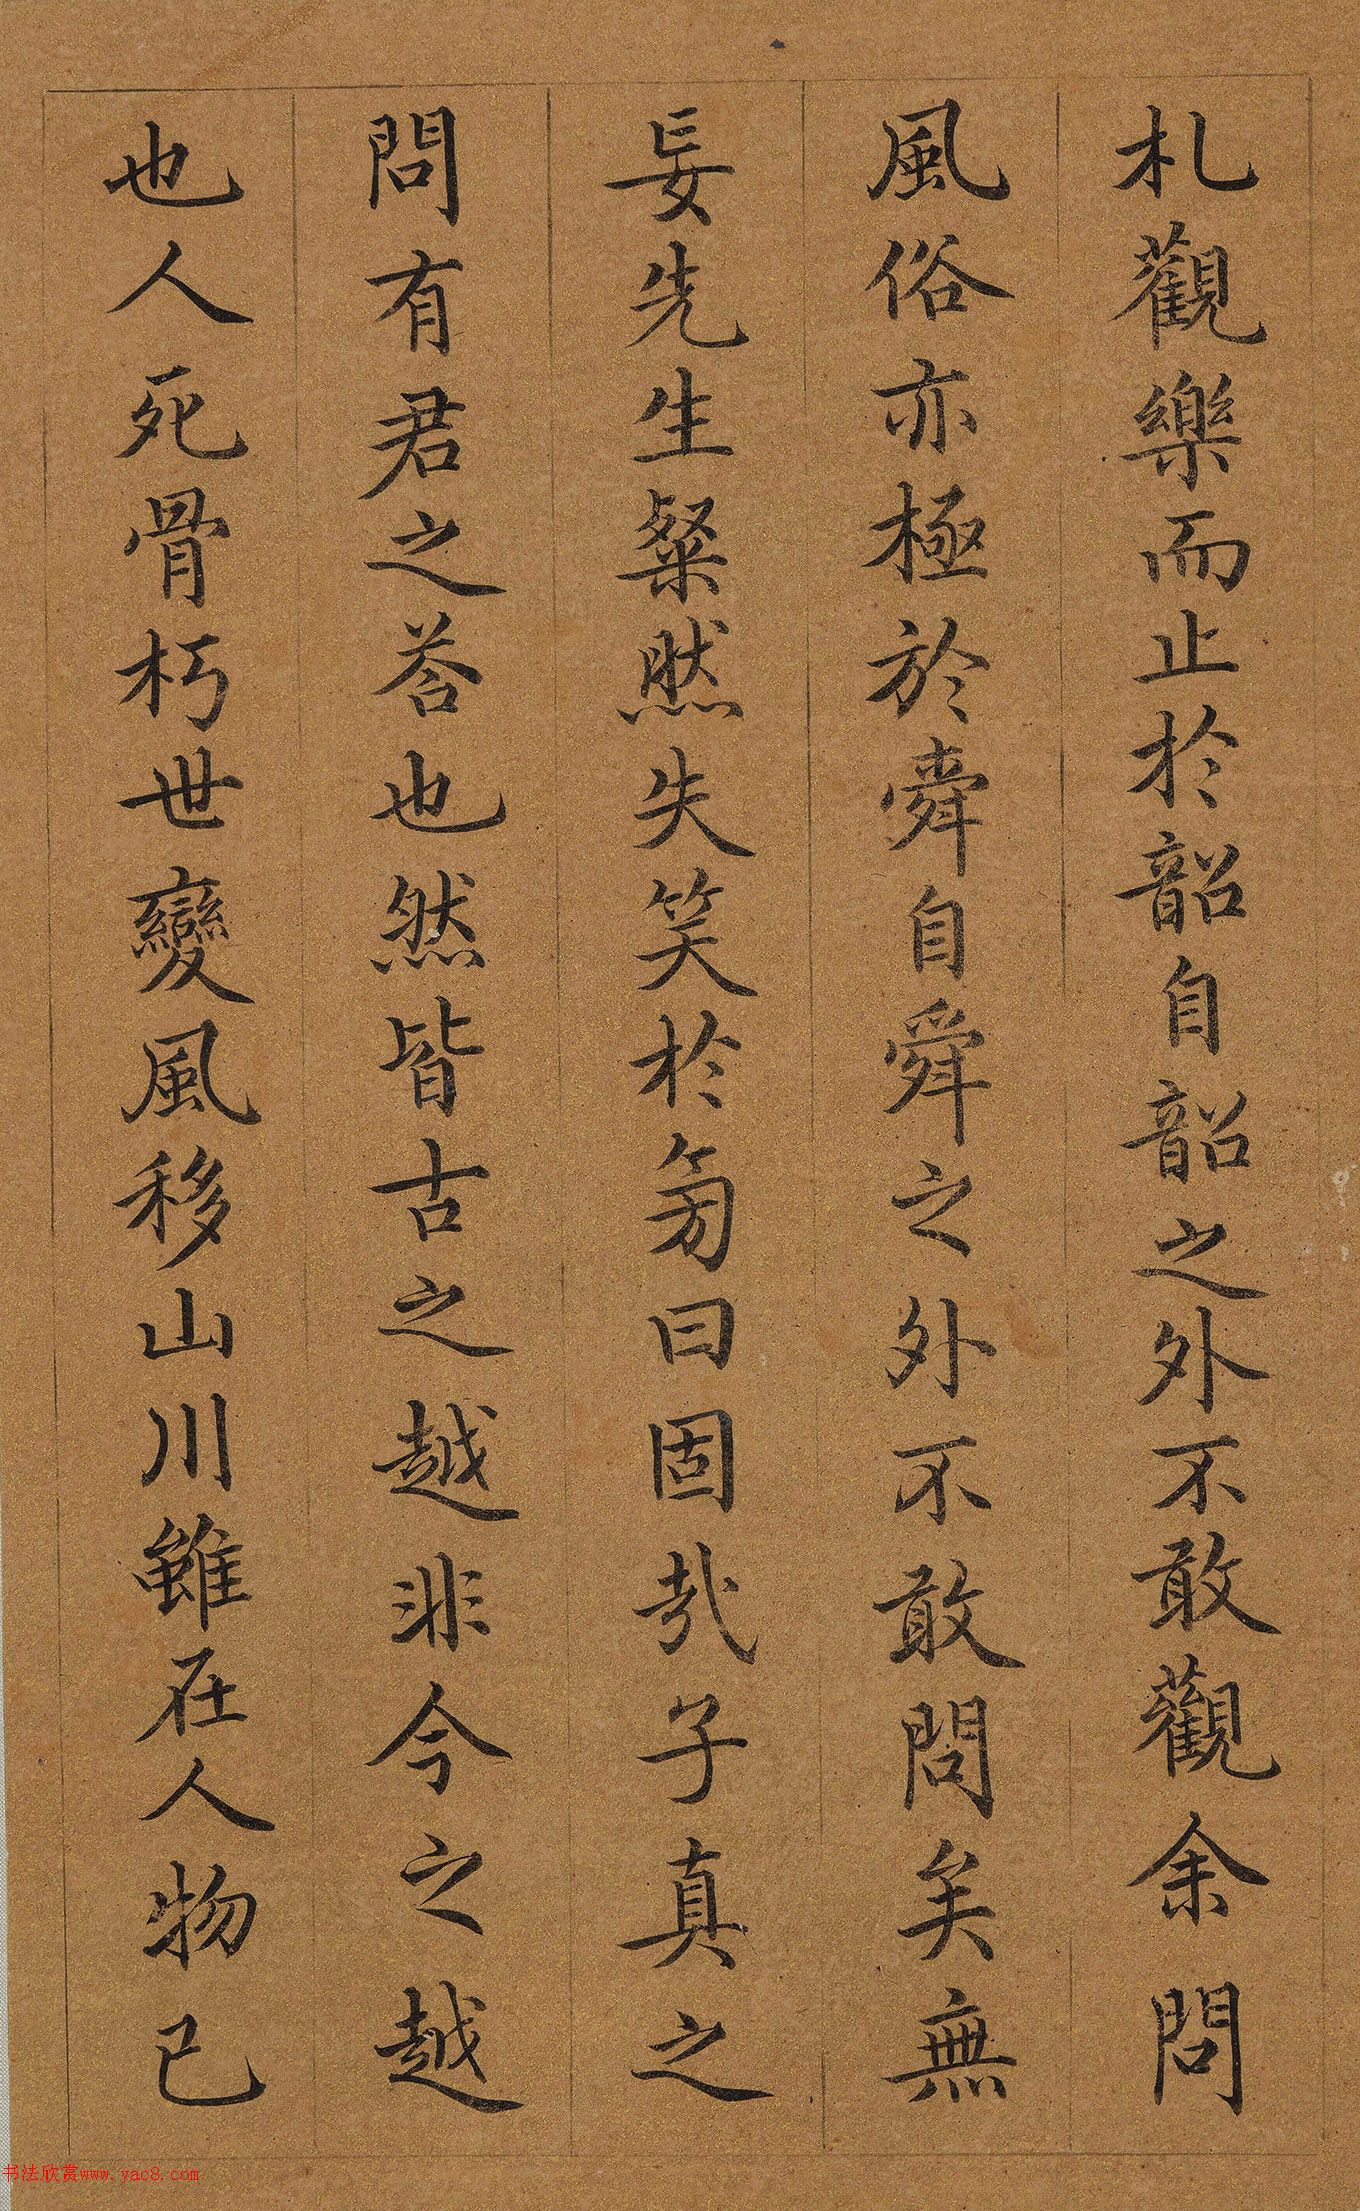 札觀樂而止於韶自韶之外不敢觀余問
風俗亦極於舜自舜之外不敢問矣無
妄先生粲然失笑於芴曰固哉子真之
問有君之荅也然皆古之越非今之越
也人死骨朽世變風移山川雖在人物已
书法欣赏www.yac8.com